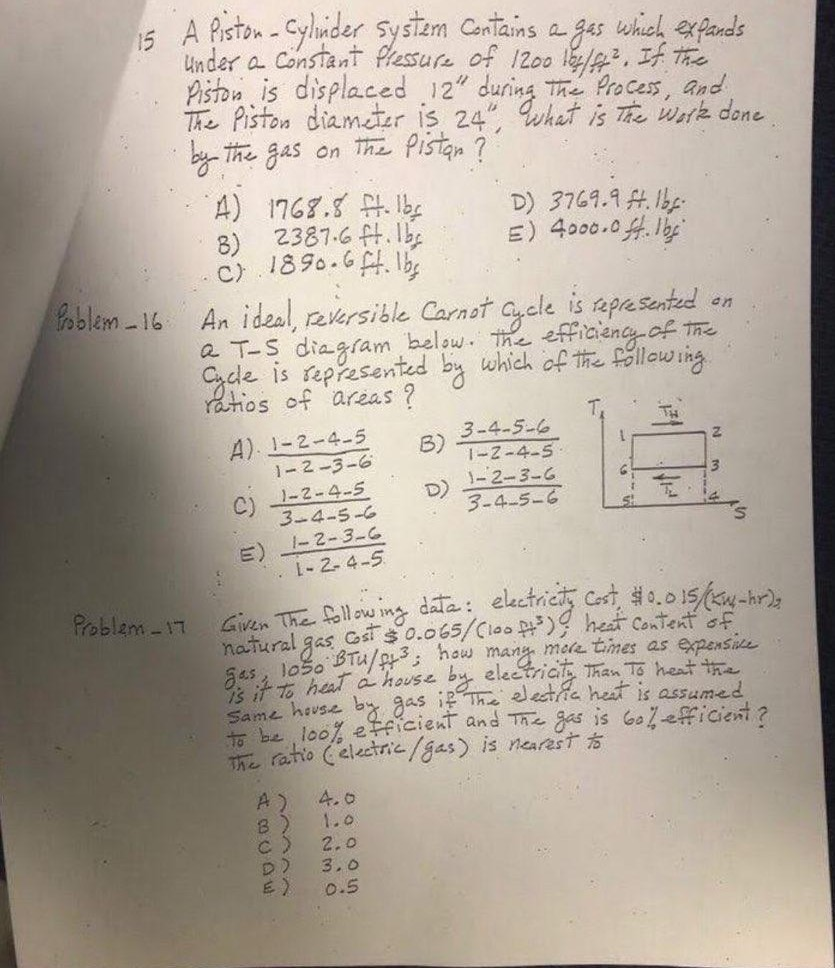 15 A Piston - Cylinder System Contains a gas which expands
under a Constant Pressure of 1200 lbf/ft². If The
Piston is displaced 12" during The Process, and
The Piston diameter is 24", what is The Work done
by The gas on The Piston?
A) 1768.8 ft.lbf
D) 3769.9 ft.lbf
B) 2387.6 ft.lbf
E) 4000.0 ft.lbf
C) 1890.6 ft.lbf
Problem-16 An ideal, reversible Carnot Cycle is represented on
a T-S diagram below. The efficiency of The
Cycle is represented by which of the following
ratios of areas?
A) 1-2-4-5
1-2-3-6
B) 3-4-5-6
1-2-4-5
C) 1-2-4-5
3-4-5-6
D) 1-2-3-6
3-4-5-6
E) 1-2-3-6
1-2-4-5
T
TH
1 2
6 3
TL
5 4
S
Problem-17 Given The following data: electricity Cost, $0.015/(KW-hr);
natural gas Cost $0.065/(100 ft³); heat Content of
gas, 1050 BTU/ft³; how many more times as expensive
is it to heat a house by electricity Than To heat the
Same house by gas if The electric heat is assumed
to be 100% efficient and The gas is 60% efficient?
The ratio (electric/gas) is nearest to
A) 4.0
B) 1.0
C) 2.0
D) 3.0
E) 0.5